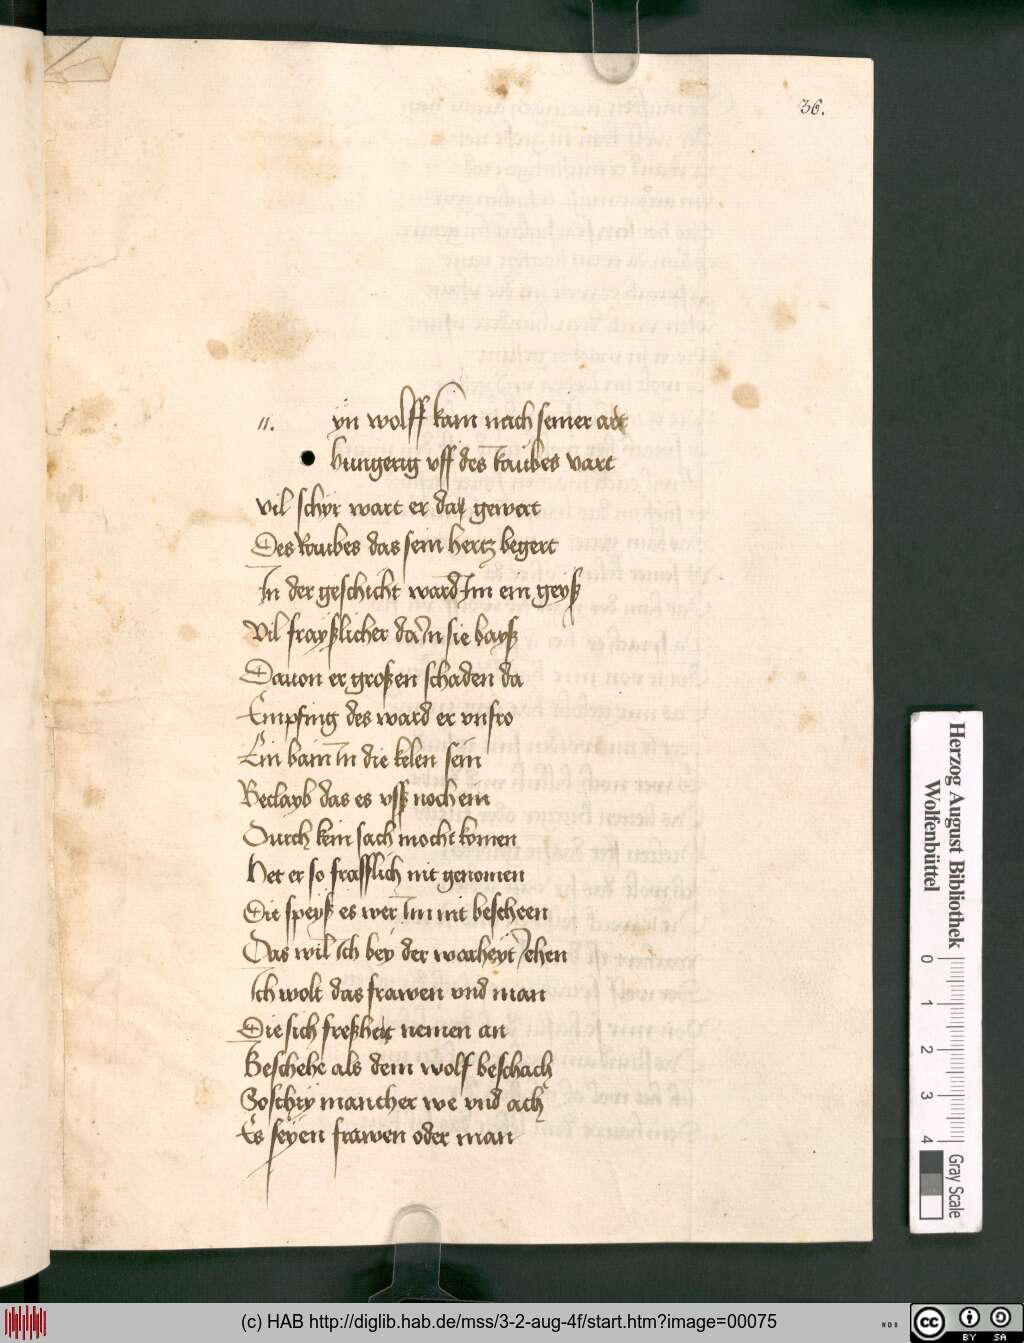 36.
11. yn wolff kam nach seiner art
hungerig vff des raubes vart
vil schyr wart er das gewert
Des Raubes das sein hertz begert
In der geschicht ward Im ein geyß
vil frayßlicher dann sie bayß
Dauon er großen schaden da
Empfing des ward er vnfro
Ein bain In die kelen sein
Beclayb das es vsß noch ein
Durch kein sach mocht komen
Het er so frasslich nit genomen
Die speyß es wer Im nit bescheen
Das wil Ich bey der warheyt Jehen
Ich wolt das frawen vnd man
Die sich freßheit nemen an
Beschehe als dem wolf beschach
So schry mancher we vnd ach
Es seyen frawen oder man
Herzog August Bibliothek
Wolfenbüttel
0 1 2 3 4
Gray Scale
(c) HAB http://diglib.hab.de/mss/3-2-aug-4f/start.htm?image=00075
cc BY SA